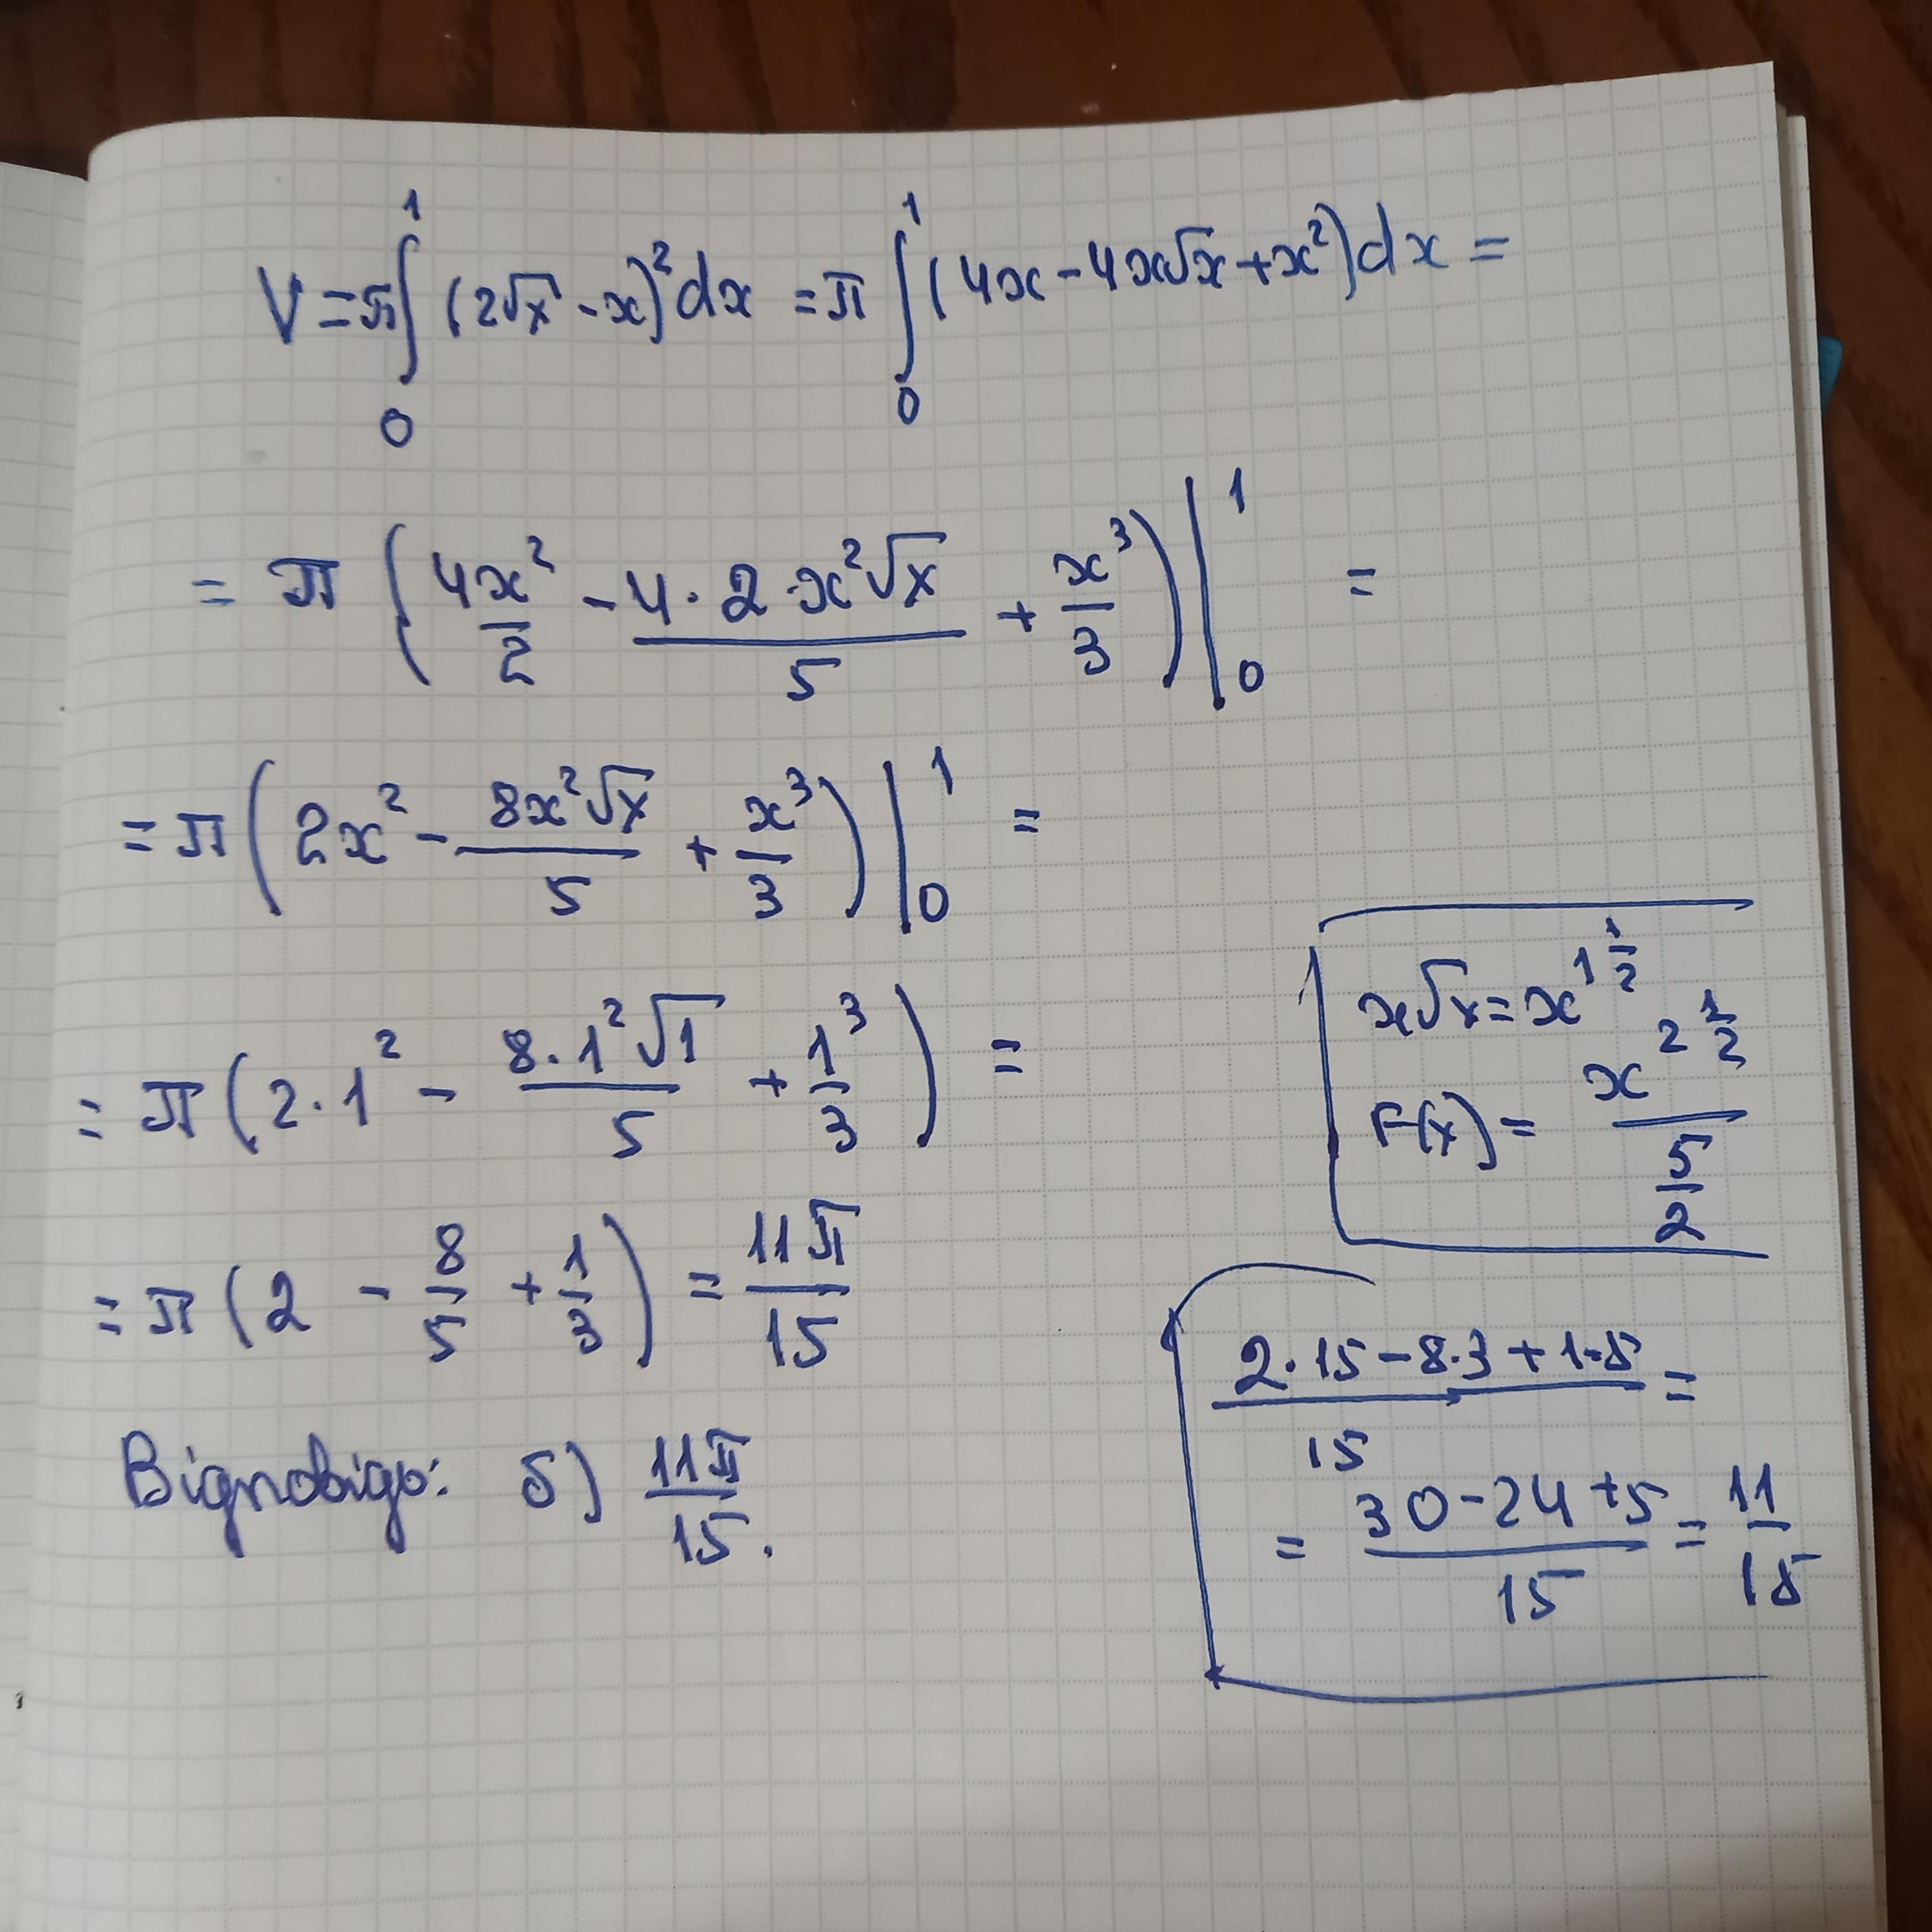 V = π∫₀¹ (2√x - x)² dx = π ∫₀¹ (4x - 4x√x + x²) dx =
= π (4x²/2 - 4·2·x²√x/5 + x³/3) |₀¹ =
= π (2x² - 8x²√x/5 + x³/3) |₀¹ =
= π (2·1² - 8·1²√1/5 + 1³/3) =
= π (2 - 8/5 + 1/3) = 11π/15
Відповідь: б) 11π/15.
x√x = x^(1 1/2)
F(x) = x^(2 1/2)/(5/2)
(2·15 - 8·3 + 1·5)/15 =
= (30 - 24 + 5)/15 = 11/15